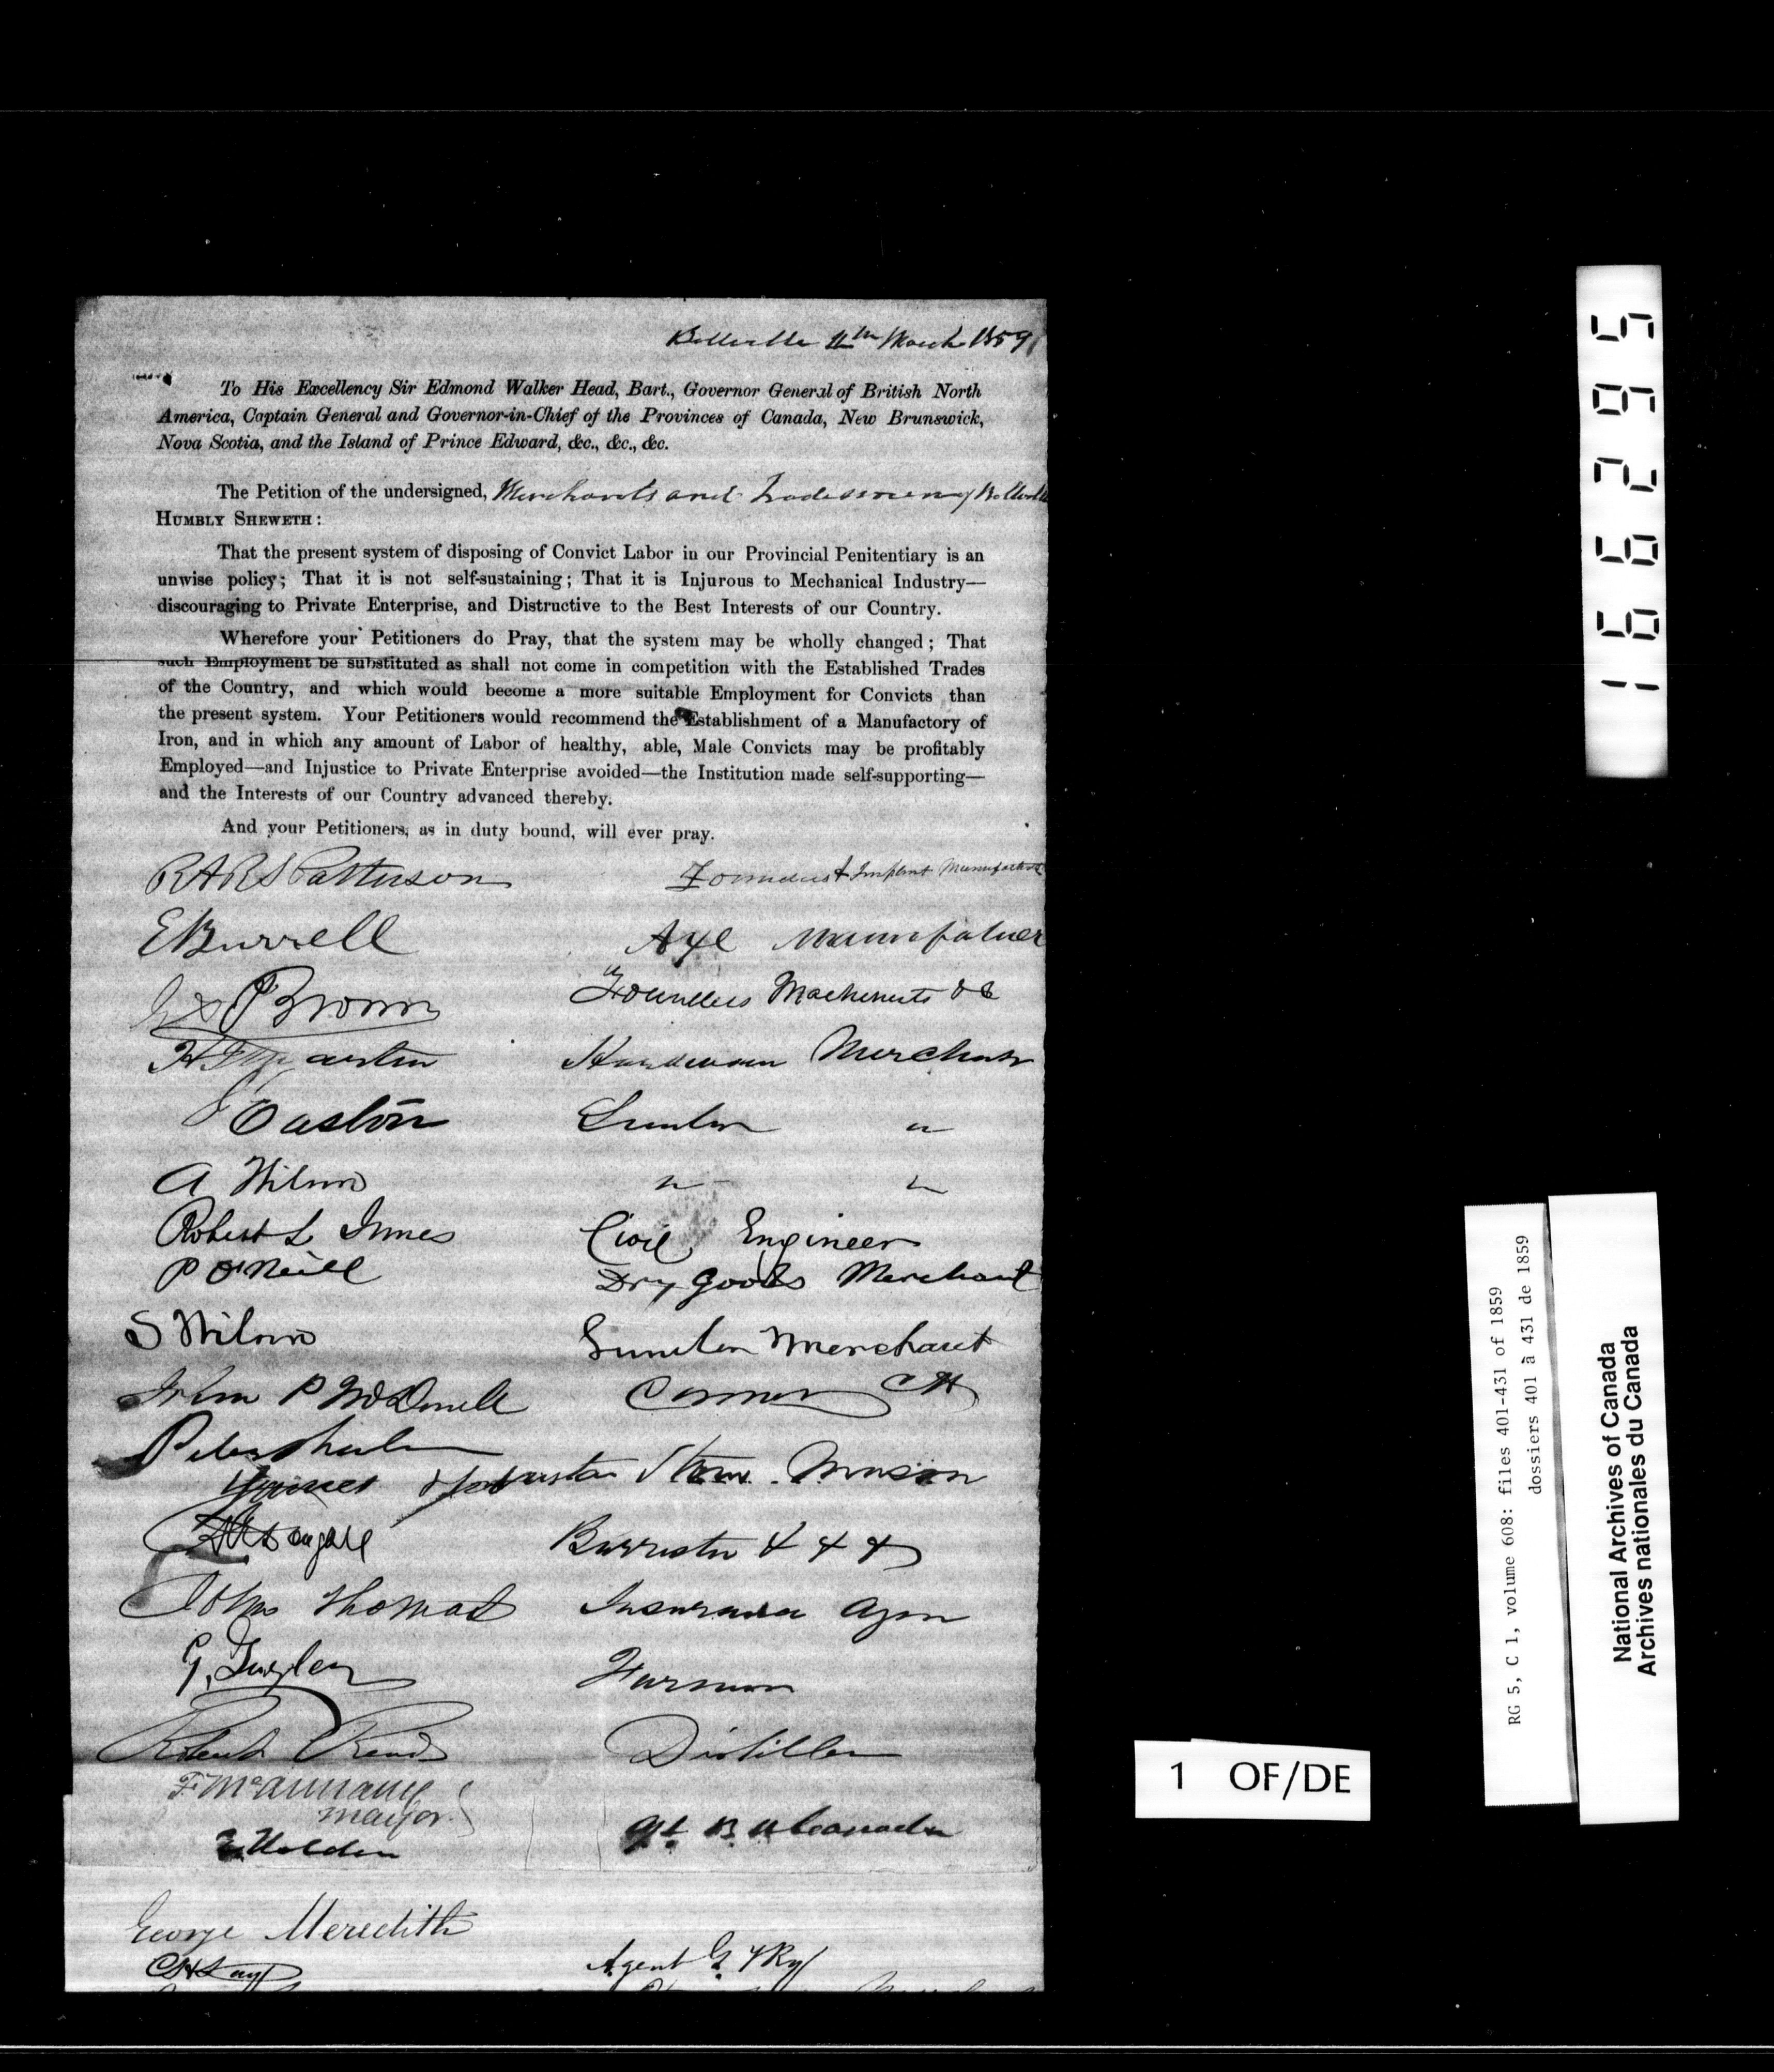 Belleville 11th March 1859
To His Excellency Sir Edmond Walker Head, Bart., Governor General of British North
America, Captain General and Governor-in-Chief of the Provinces of Canada, New Brunswick,
Nova Scotia, and the Island of Prince Edward, &c., &c., &c.
The Petition of the undersigned, Merchants and Tradesmen of Belleville
HUMBLY SHEWETH:
That the present system of disposing of Convict Labor in our Provincial Penitentiary is an
unwise policy; That it is not self-sustaining; That it is Injurous to Mechanical Industry—
discouraging to Private Enterprise, and Distructive to the Best Interests of our Country.
Wherefore your Petitioners do Pray, that the system may be wholly changed; That
such Employment be substituted as shall not come in competition with the Established Trades
of the Country, and which would become a more suitable Employment for Convicts than
the present system. Your Petitioners would recommend the Establishment of a Manufactory of
Iron, and in which any amount of Labor of healthy, able, Male Convicts may be profitably
Employed—and Injustice to Private Enterprise avoided—the Institution made self-supporting—
and the Interests of our Country advanced thereby.
And your Petitioners, as in duty bound, will ever pray.
R A R S Patterson Founders &
E Burrell Axe
Brown Founders Machinists &c
Hardware Merchant
Easton
A Wilson " "
Robert L Innes Civil Engineer
P O'Neill Dry Goods Merchant
S Wilson Merchant
John P McDonell
Peter
Stone Mason
Barrister & & &
John Thomas Insurance Agen
G.
Robert Read Distiller
F McAnnany
mayor
Holden
George Meredith
Agent G T Ry
166295
RG 5, C 1, volume 608: files 401-431 of 1859
dossiers 401 à 431 de 1859
National Archives of Canada
Archives nationales du Canada
1 OF/DE